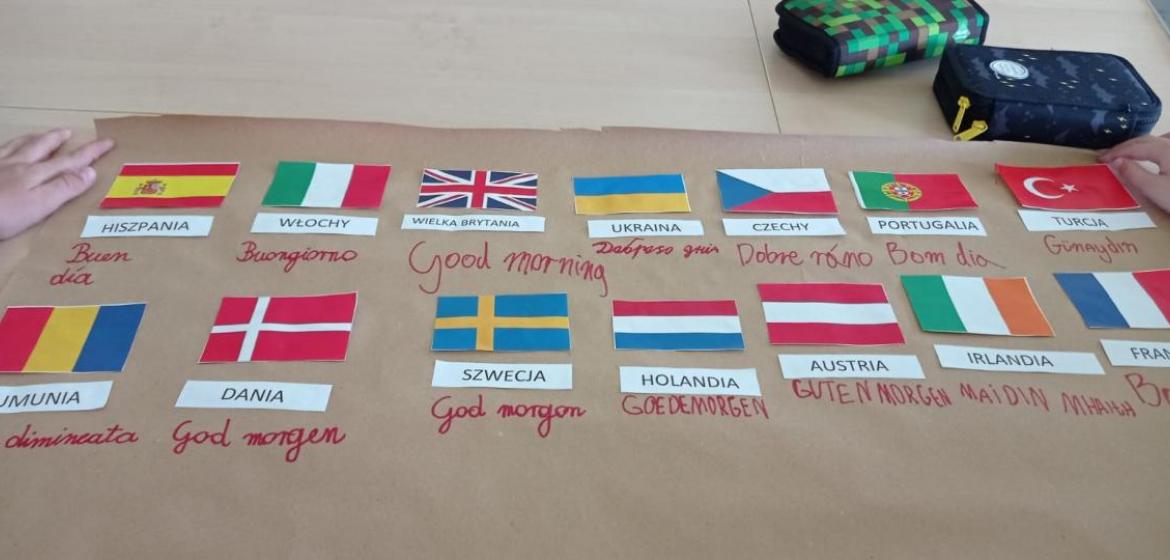 HISZPANIA
WŁOCHY
WIELKA BRYTANIA
UKRAINA
CZECHY
PORTUGALIA
TURCJA
Buen
día
Buongiorno
Good morning
Dobre ráno
Bom dia
Günaydın
UMUNIA
DANIA
SZWECJA
HOLANDIA
AUSTRIA
IRLANDIA
FRAN
dimineata
God morgen
God morgon
GOEDEMORGEN
GUTEN MORGEN
MAIDIN MHAITH